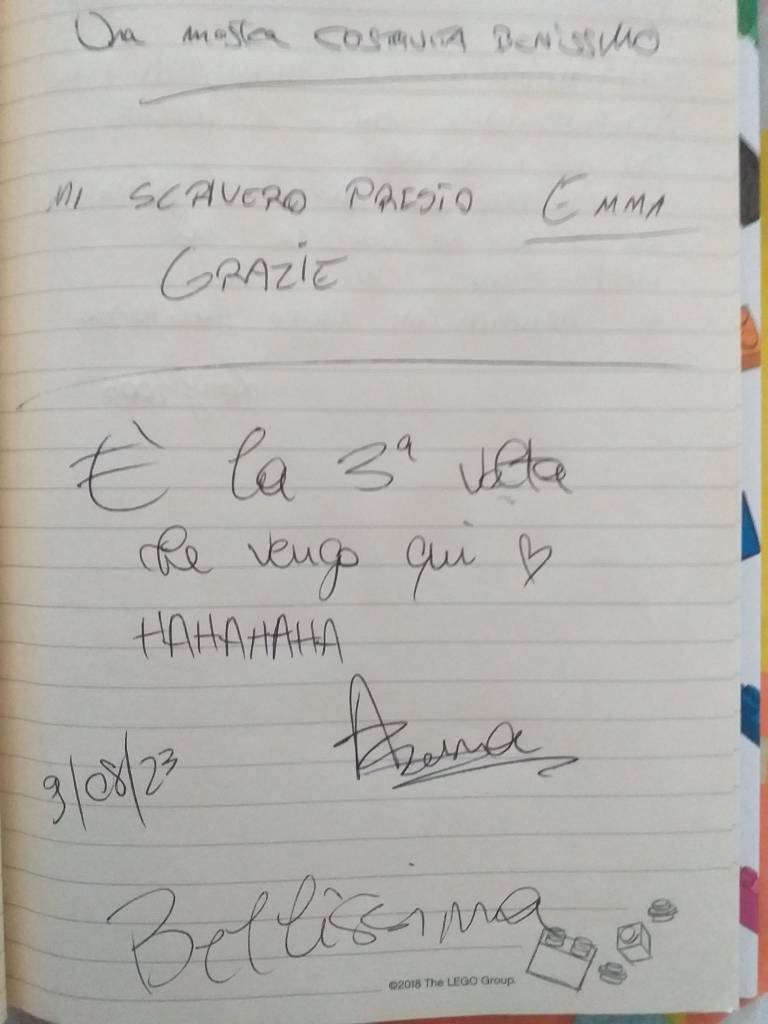 Una mostra COSTRUITA BENISSIMO
MI SCRIVERO PRESTO EMMA
GRAZIE
È la 3ª volta
che vengo qui ♡
HAHAHAHA
9/08/23
Bellissima
©2018 The LEGO Group.